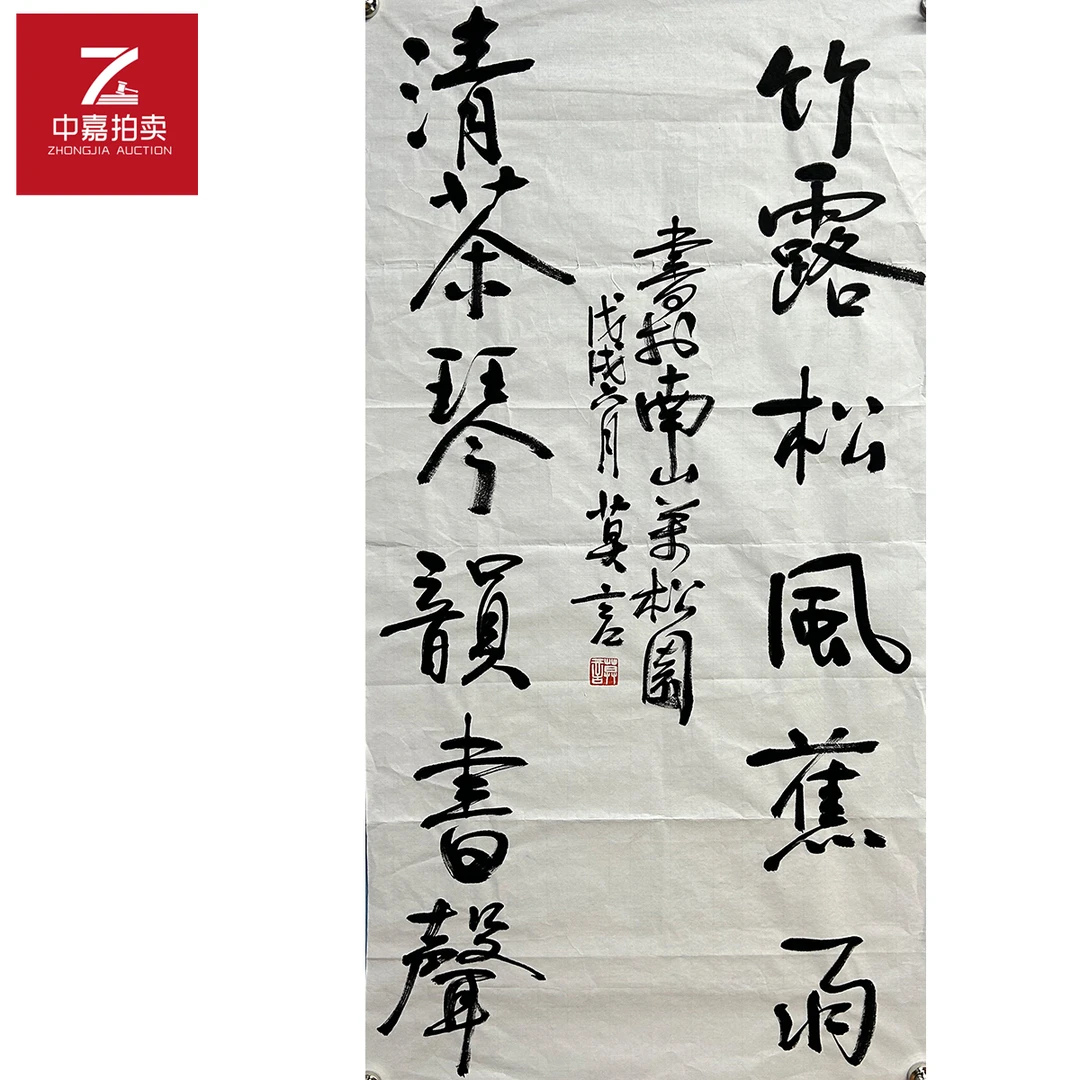 中嘉拍卖
ZHONGJIA AUCTION
竹露松風蕉雨
清茶琴韻書聲
書於南山萬松園
戊戌六月 莫言
莫言